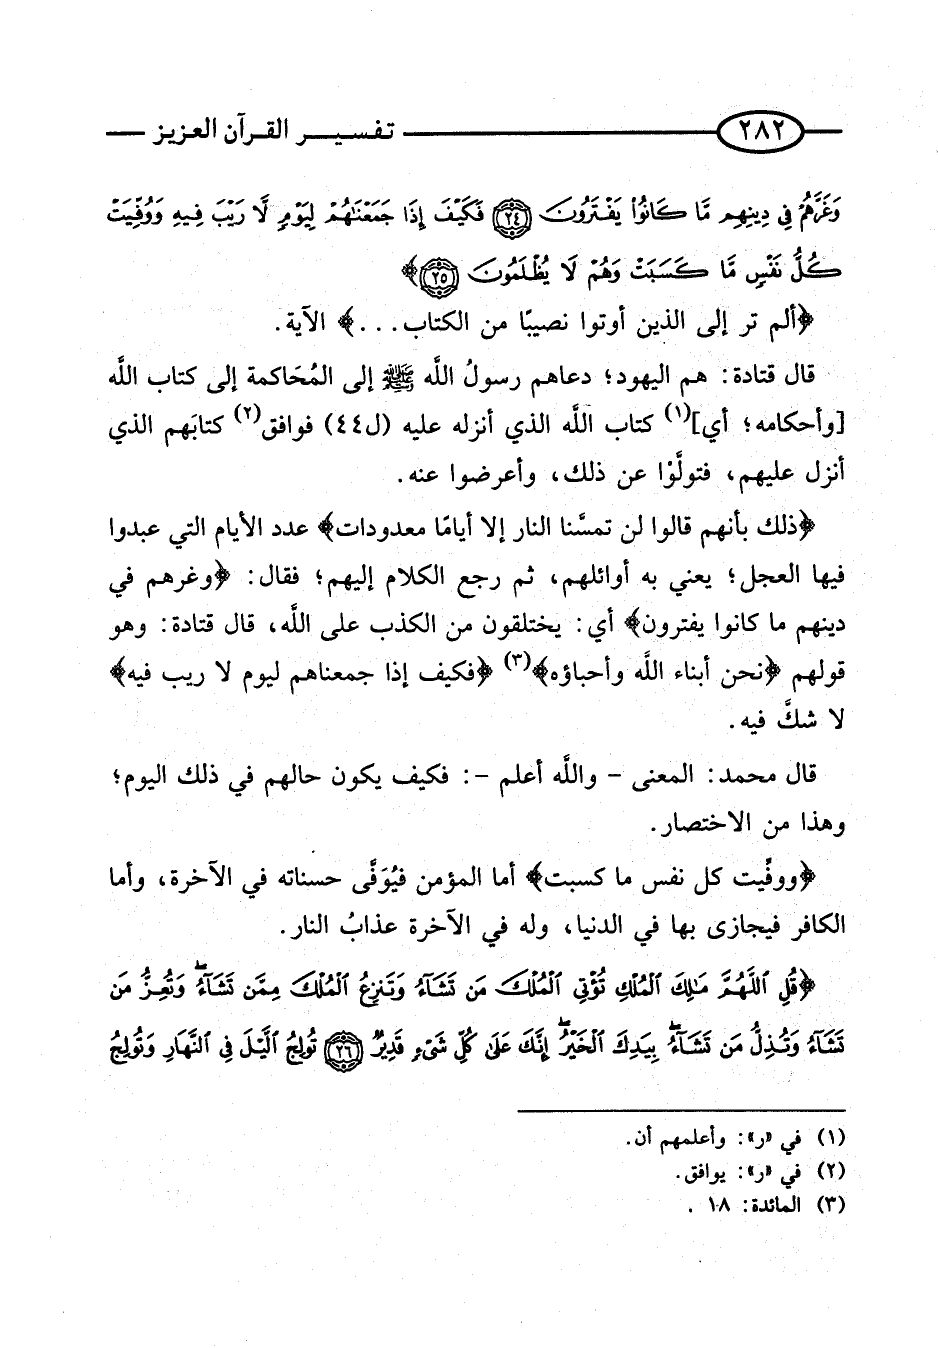 ٢٨٢ تفسير القرآن العزيز
وَغَرَّهُمْ فِي دِينِهِم مَّا كَانُوا۟ يَفْتَرُونَ ٢٤ فَكَيْفَ إِذَا جَمَعْنَٰهُمْ لِيَوْمٍ لَّا رَيْبَ فِيهِ وَوُفِّيَتْ
كُلُّ نَفْسٍ مَّا كَسَبَتْ وَهُمْ لَا يُظْلَمُونَ ٢٥﴾
﴿ألم تر إلى الذين أوتوا نصيبًا من الكتاب...﴾ الآية.
قال قتادة: هم اليهود؛ دعاهم رسولُ اللَّه ﷺ إلى المُحَاكمة إلى كتاب اللَّه
[وأحكامه؛ أي](١) كتاب اللَّه الذي أنزله عليه (ل٤٤) فوافق(٢) كتابَهم الذي
أنزل عليهم، فتولَّوْا عن ذلك، وأعرضوا عنه.
﴿ذلك بأنهم قالوا لن تمسَّنا النار إلا أيامًا معدودات﴾ عدد الأيام التي عبدوا
فيها العجل؛ يعني به أوائلهم، ثم رجع الكلام إليهم؛ فقال: ﴿وغرهم في
دينهم ما كانوا يفترون﴾ أي: يختلقون من الكذب على اللَّه، قال قتادة: وهو
قولهم ﴿نحن أبناء اللَّه وأحباؤه﴾(٣) ﴿فكيف إذا جمعناهم ليوم لا ريب فيه﴾
لا شكَّ فيه.
قال محمد: المعنى - واللَّه أعلم -: فكيف يكون حالهم في ذلك اليوم؛
وهذا من الاختصار.
﴿ووفِّيت كل نفس ما كسبت﴾ أما المؤمن فيُوَفَّى حسناته في الآخرة، وأما
الكافر فيجازى بها في الدنيا، وله في الآخرة عذابُ النار.
﴿قُلِ ٱللَّهُمَّ مَٰلِكَ ٱلْمُلْكِ تُؤْتِي ٱلْمُلْكَ مَن تَشَآءُ وَتَنزِعُ ٱلْمُلْكَ مِمَّن تَشَآءُ وَتُعِزُّ مَن
تَشَآءُ وَتُذِلُّ مَن تَشَآءُ بِيَدِكَ ٱلْخَيْرُ إِنَّكَ عَلَىٰ كُلِّ شَىْءٍ قَدِيرٌ ٢٦ تُولِجُ ٱلَّيْلَ فِي ٱلنَّهَارِ وَتُولِجُ
(١) في «ر»: وأعلمهم أن.
(٢) في «ر»: يوافق.
(٣) المائدة: ١٠٨.